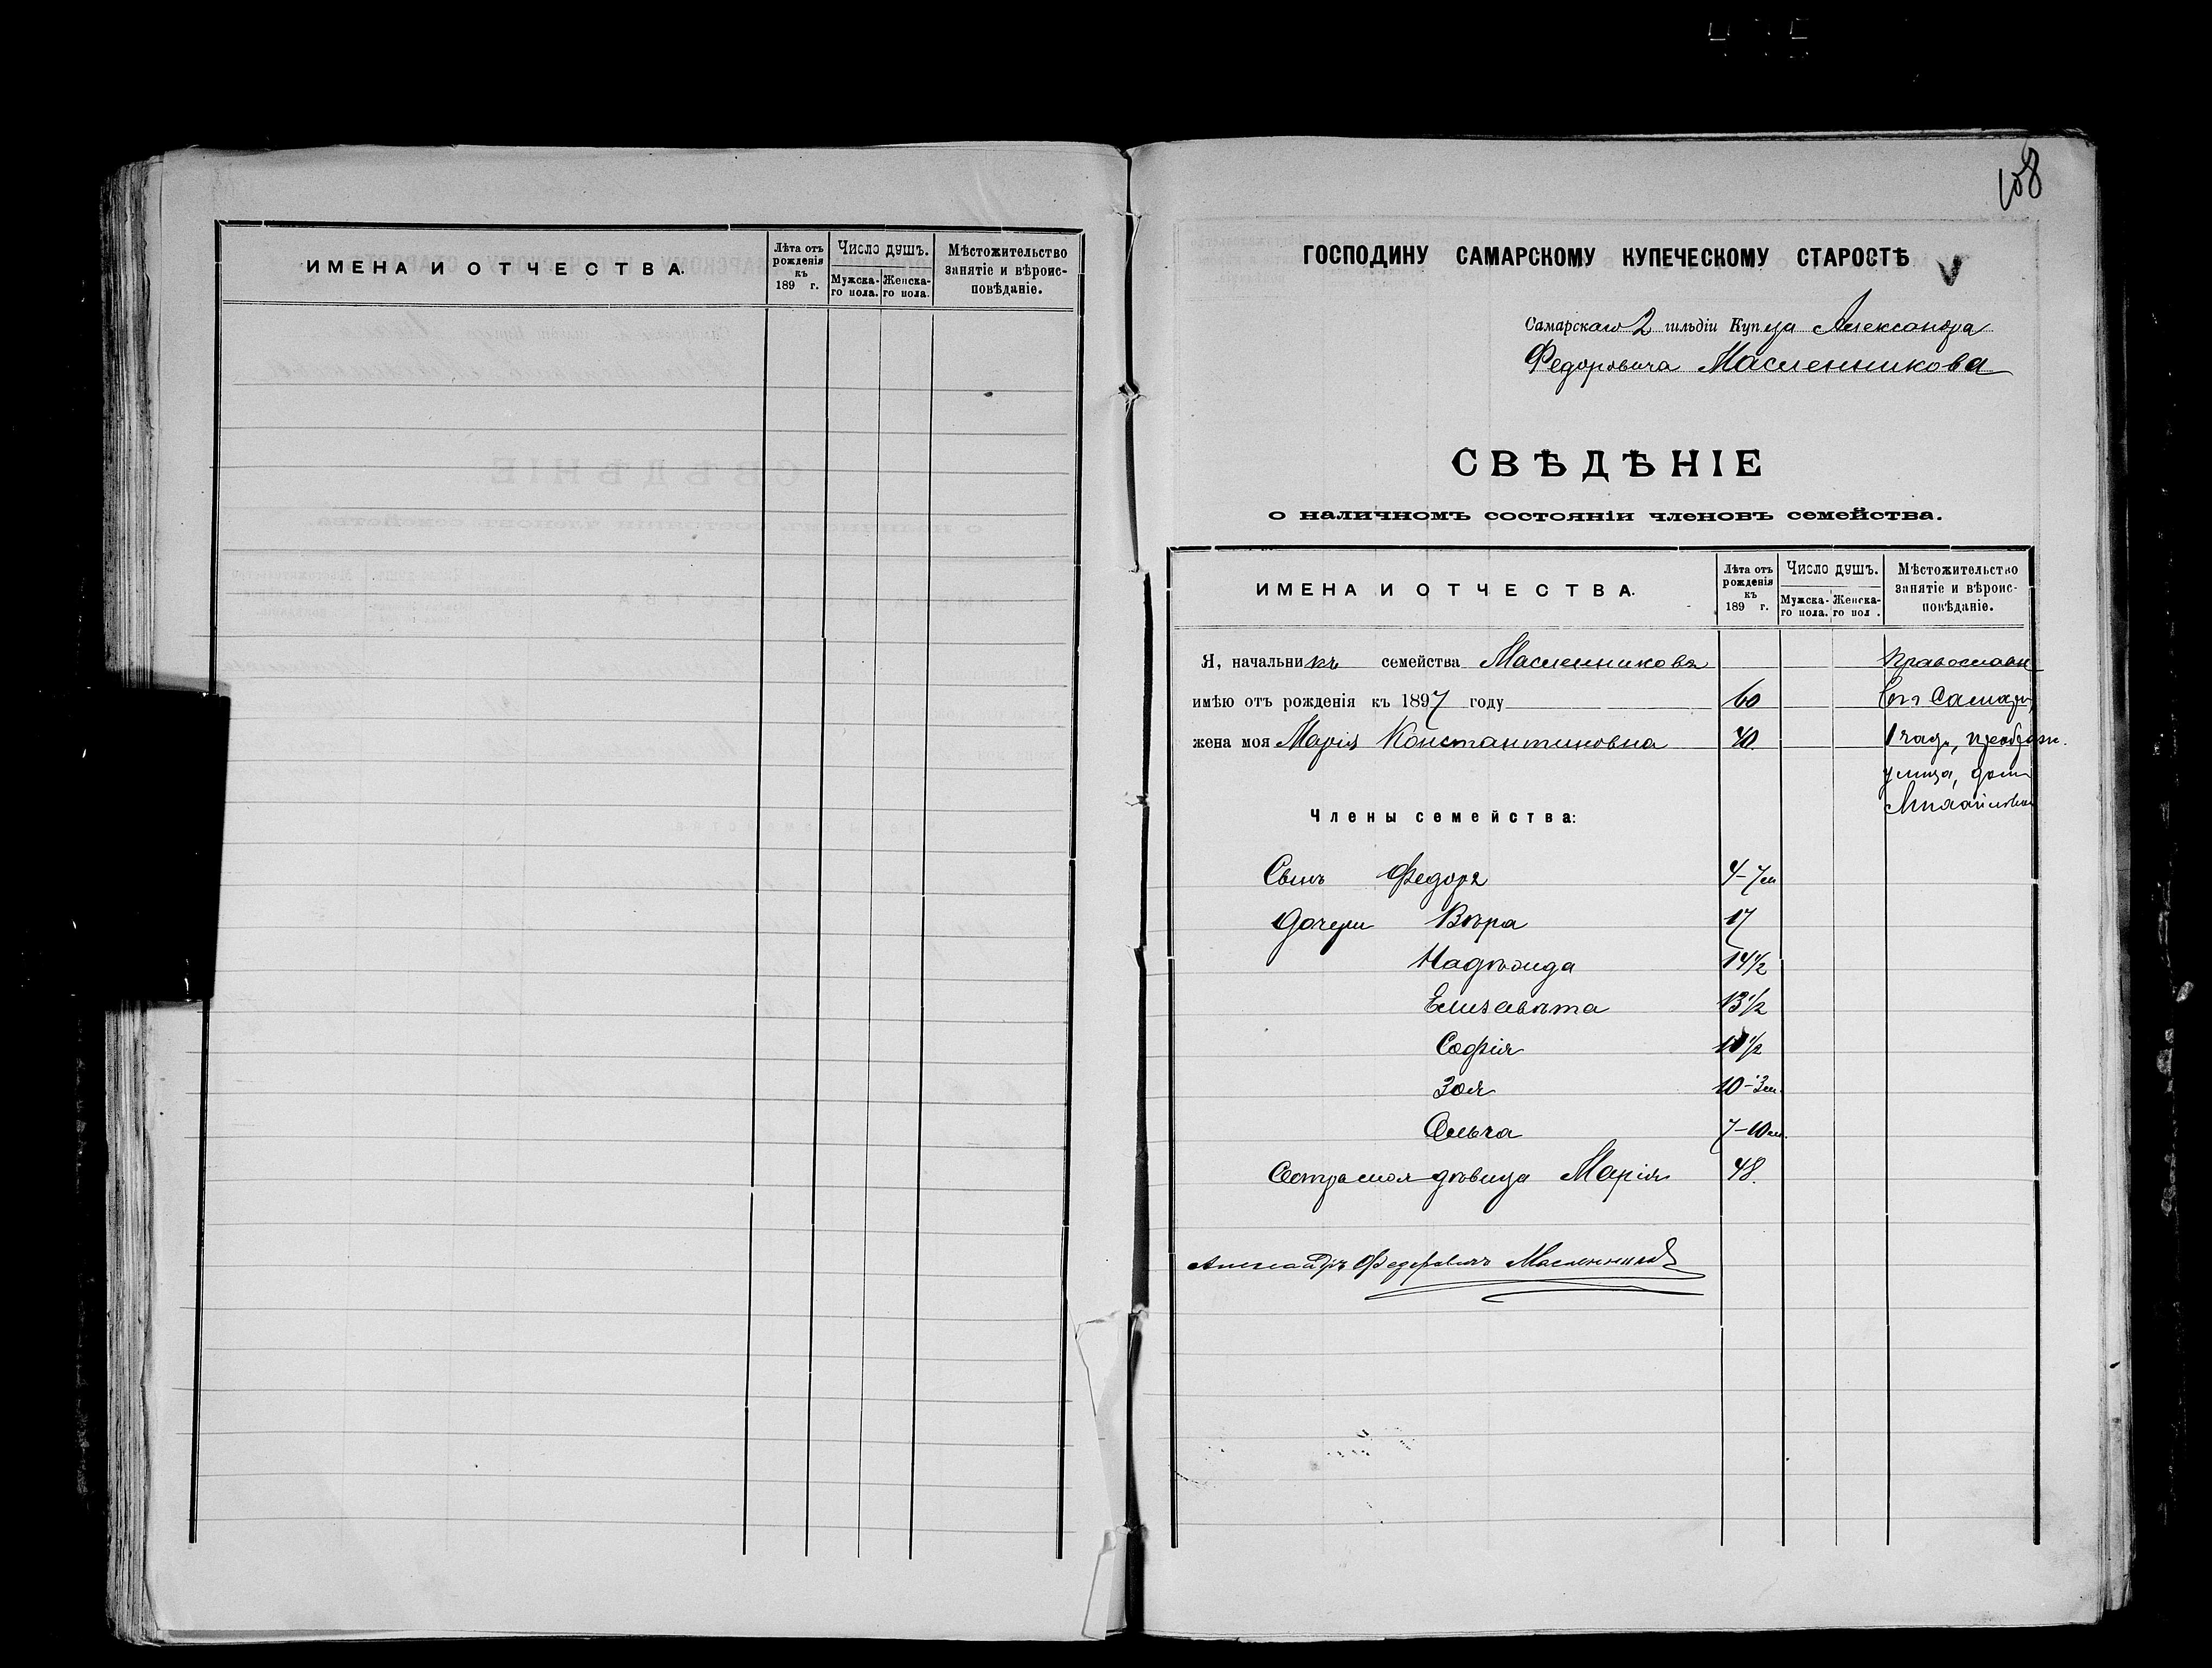 ИМЕНА И ОТЧЕСТВА.
Лѣта отъ рожденія къ 189 г.
Число душъ.
Мужска-го пола.
Женска-го пола.
Мѣстожительство занятіе и вѣроис-повѣданіе.
108
ГОСПОДИНУ САМАРСКОМУ КУПЕЧЕСКОМУ СТАРОСТѢ
Самарскаго 2 гильдіи Купца Александра
Федоровича Масленникова
СВѢДѢНІЕ
о наличномъ состояніи членовъ семейства.
ИМЕНА И ОТЧЕСТВА.
Лѣта отъ рожденія къ 189 г.
Число душъ.
Мужска-го пола.
Женска-го пол .
Мѣстожительство занятіе и вѣроис-повѣданіе.
Я, начальникъ семейства Масленниковъ православн
имѣю отъ рожденія къ 1897 году 60 въ Самарѣ,
жена моя Марія Константиновна 40. 1 част, преображ.
улица, домъ
Члены семейства:
Сынъ Федоръ 4-7м
Дочери Вѣра 17
Надѣжда 14 1/2
Елизавѣта 13 1/2
Софія 11 1/2
Зоя 10-3м.
Ольга 7-10м.
Сестра моя дѣвица Марія 48.
Александръ Федоровичъ Масленниковъ